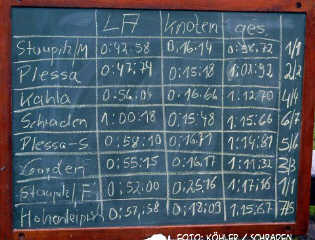 LA Knoten ges.
Staupitz/M 0:42.58 0:16.14 72 1/1
Plessa 0:47:74 0:15:18 2/2
Kahla 0:16.66 1:12.70 4/4
Schraden 1:00:18 0:15:48 1:15.66 6/7
Plessa-S 0:58:10 5/6
0:55:15 0:16.17 3/2
Staupitz/F 0:52:00 0:25:16 1:17:16 1/1
Hohenleipisch 0:57,58 0:18:09 1:15.67
FOTO: KÖHLER / SCHRADEN